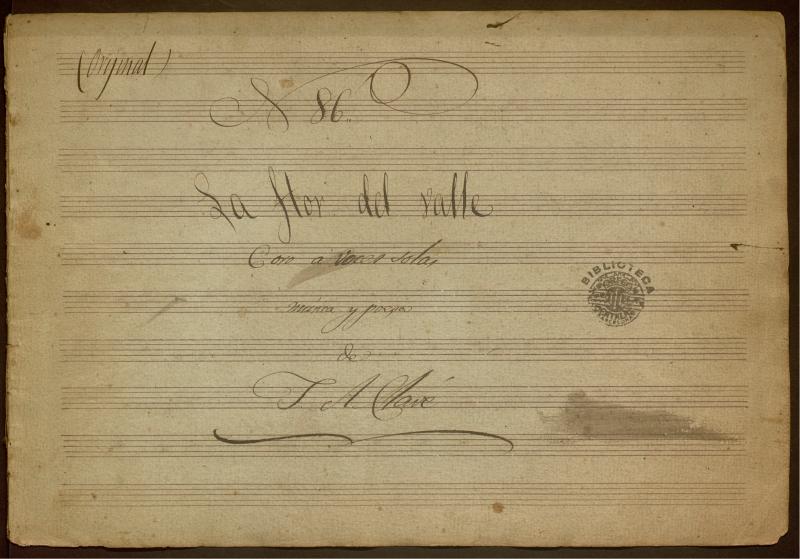 (Original)
N 86.
La flor del valle
Coro á voces solas
música y poesia
de
J. A. Clavé
BIBLIOTECA